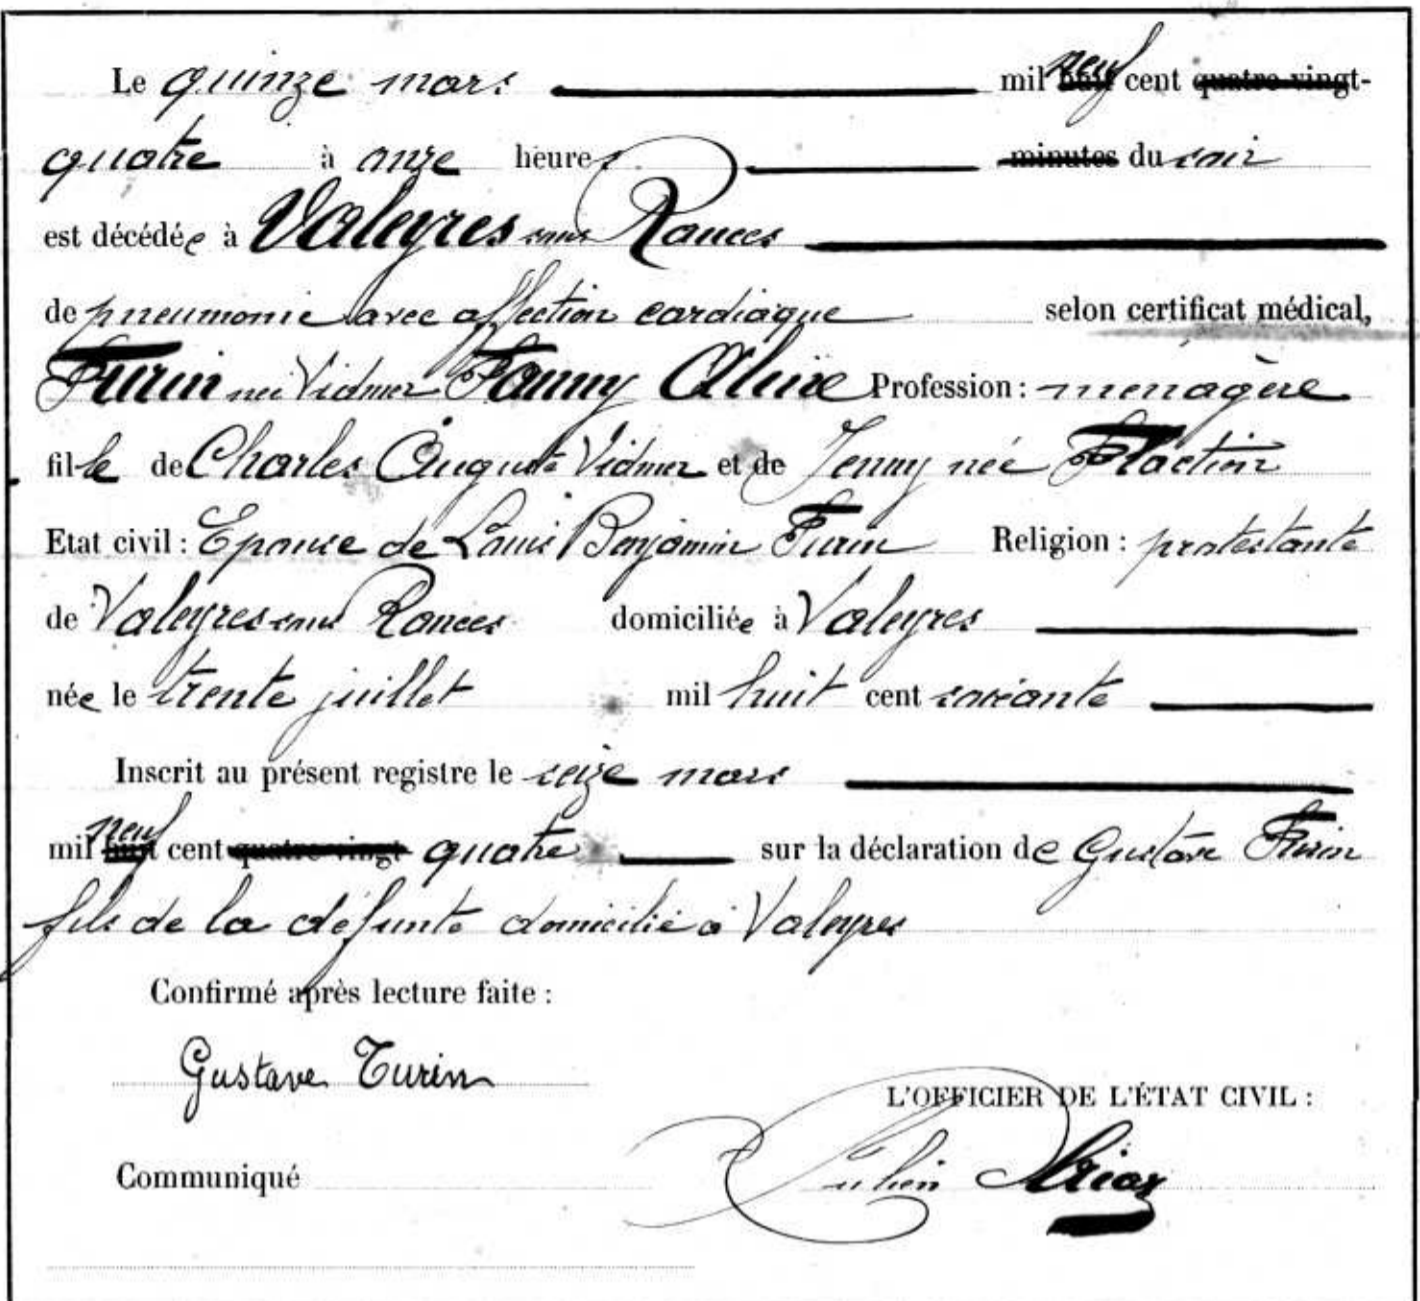 Le quinze mars mil neuf cent quatre-vingt-
quatre à onze heures minutes du soir
est décédée à Valeyres sous Rances
de pneumonie avec affection cardiaque selon certificat médical,
Turin née Vidmer Fanny Aline Profession : ménagère
fille de Charles Auguste Vidmer et de Jenny née Flaction
Etat civil : Epouse de Louis Benjamin Turin Religion : protestante
de Valeyres sous Rances domiciliée à Valeyres
née le trente juillet mil huit cent soixante
Inscrit au présent registre le seize mars
mil neuf cent quatre-vingt quatre sur la déclaration de Gustave Turin
fils de la défunte domicilié à Valeyres
Confirmé après lecture faite :
Gustave Turin
L'OFFICIER DE L'ÉTAT CIVIL :
Communiqué